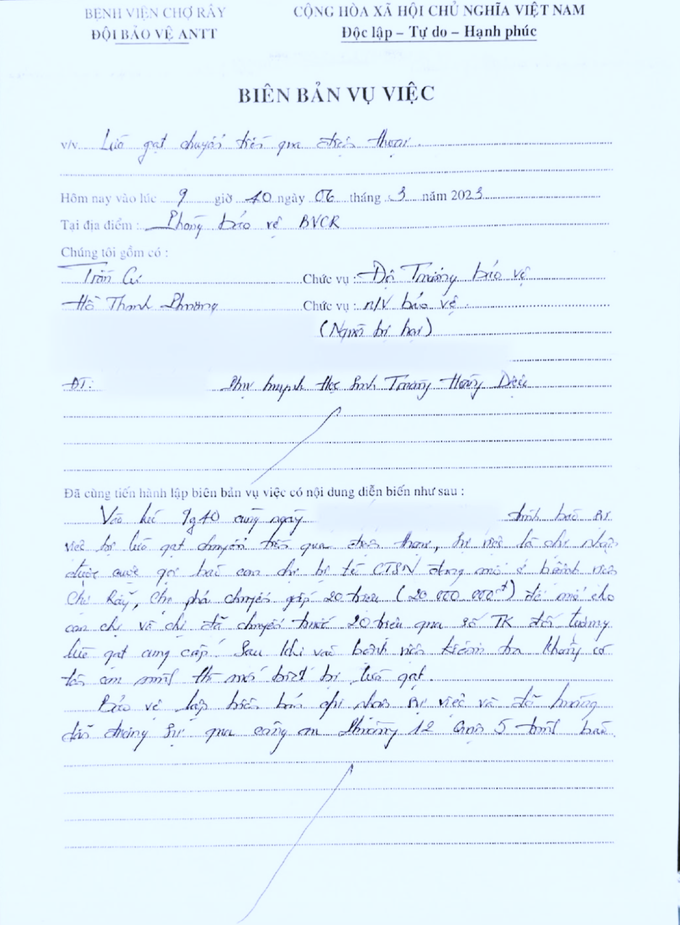 BỆNH VIỆN CHỢ RẪY
ĐỘI BẢO VỆ ANTT
CỘNG HÒA XÃ HỘI CHỦ NGHĨA VIỆT NAM
Độc lập – Tự do – Hạnh phúc
BIÊN BẢN VỤ VIỆC
v/v Lừa gạt chuyển tiền qua điện thoại.
Hôm nay vào lúc 9 giờ 40 ngày 06 tháng 3 năm 2023
Tại địa điểm : Phòng bảo vệ BVCR
Chúng tôi gồm có :
Trần Cư Chức vụ : Đội Trưởng bảo vệ
Hồ Thanh Phương Chức vụ : n/V bảo vệ
(Người bị hại)
ĐT: Phụ huynh Học Sinh Trường Hoàng Diệu
Đã cùng tiến hành lập biên bản vụ việc có nội dung diễn biến như sau :
Vào lúc 9g40 cùng ngày trình báo sự
việc bị lừa gạt chuyển tiền qua điện thoại, sự việc là chị nhận
được cuộc gọi báo con chị bị té CTSN đang mổ ở bệnh viện
Chợ Rẫy, cho phải chuyển gấp 20 triệu (20 000 000đ) để mổ cho
con chị và chị đã chuyển trước 20 triệu qua số TK đối tượng
lừa gạt cung cấp. Sau khi vào bệnh viện kiểm tra không có
tên con mình thì mới biết bị lừa gạt.
Bảo vệ lập biên bản ghi nhận sự việc và đã hướng
dẫn đương sự qua công an Phường 12 Quận 5 trình báo